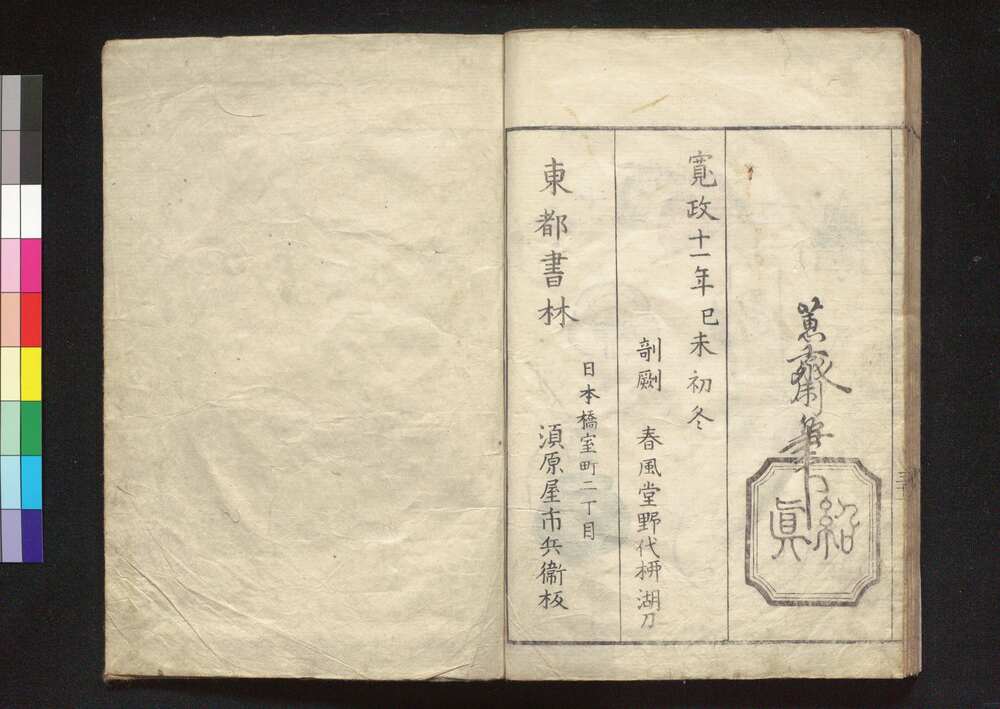 蕙齋筆
紹眞
寛政十一年己未初冬
剞劂 春風堂野代柳湖刀
東都書林
日本橋室町二丁目
須原屋市兵衞板